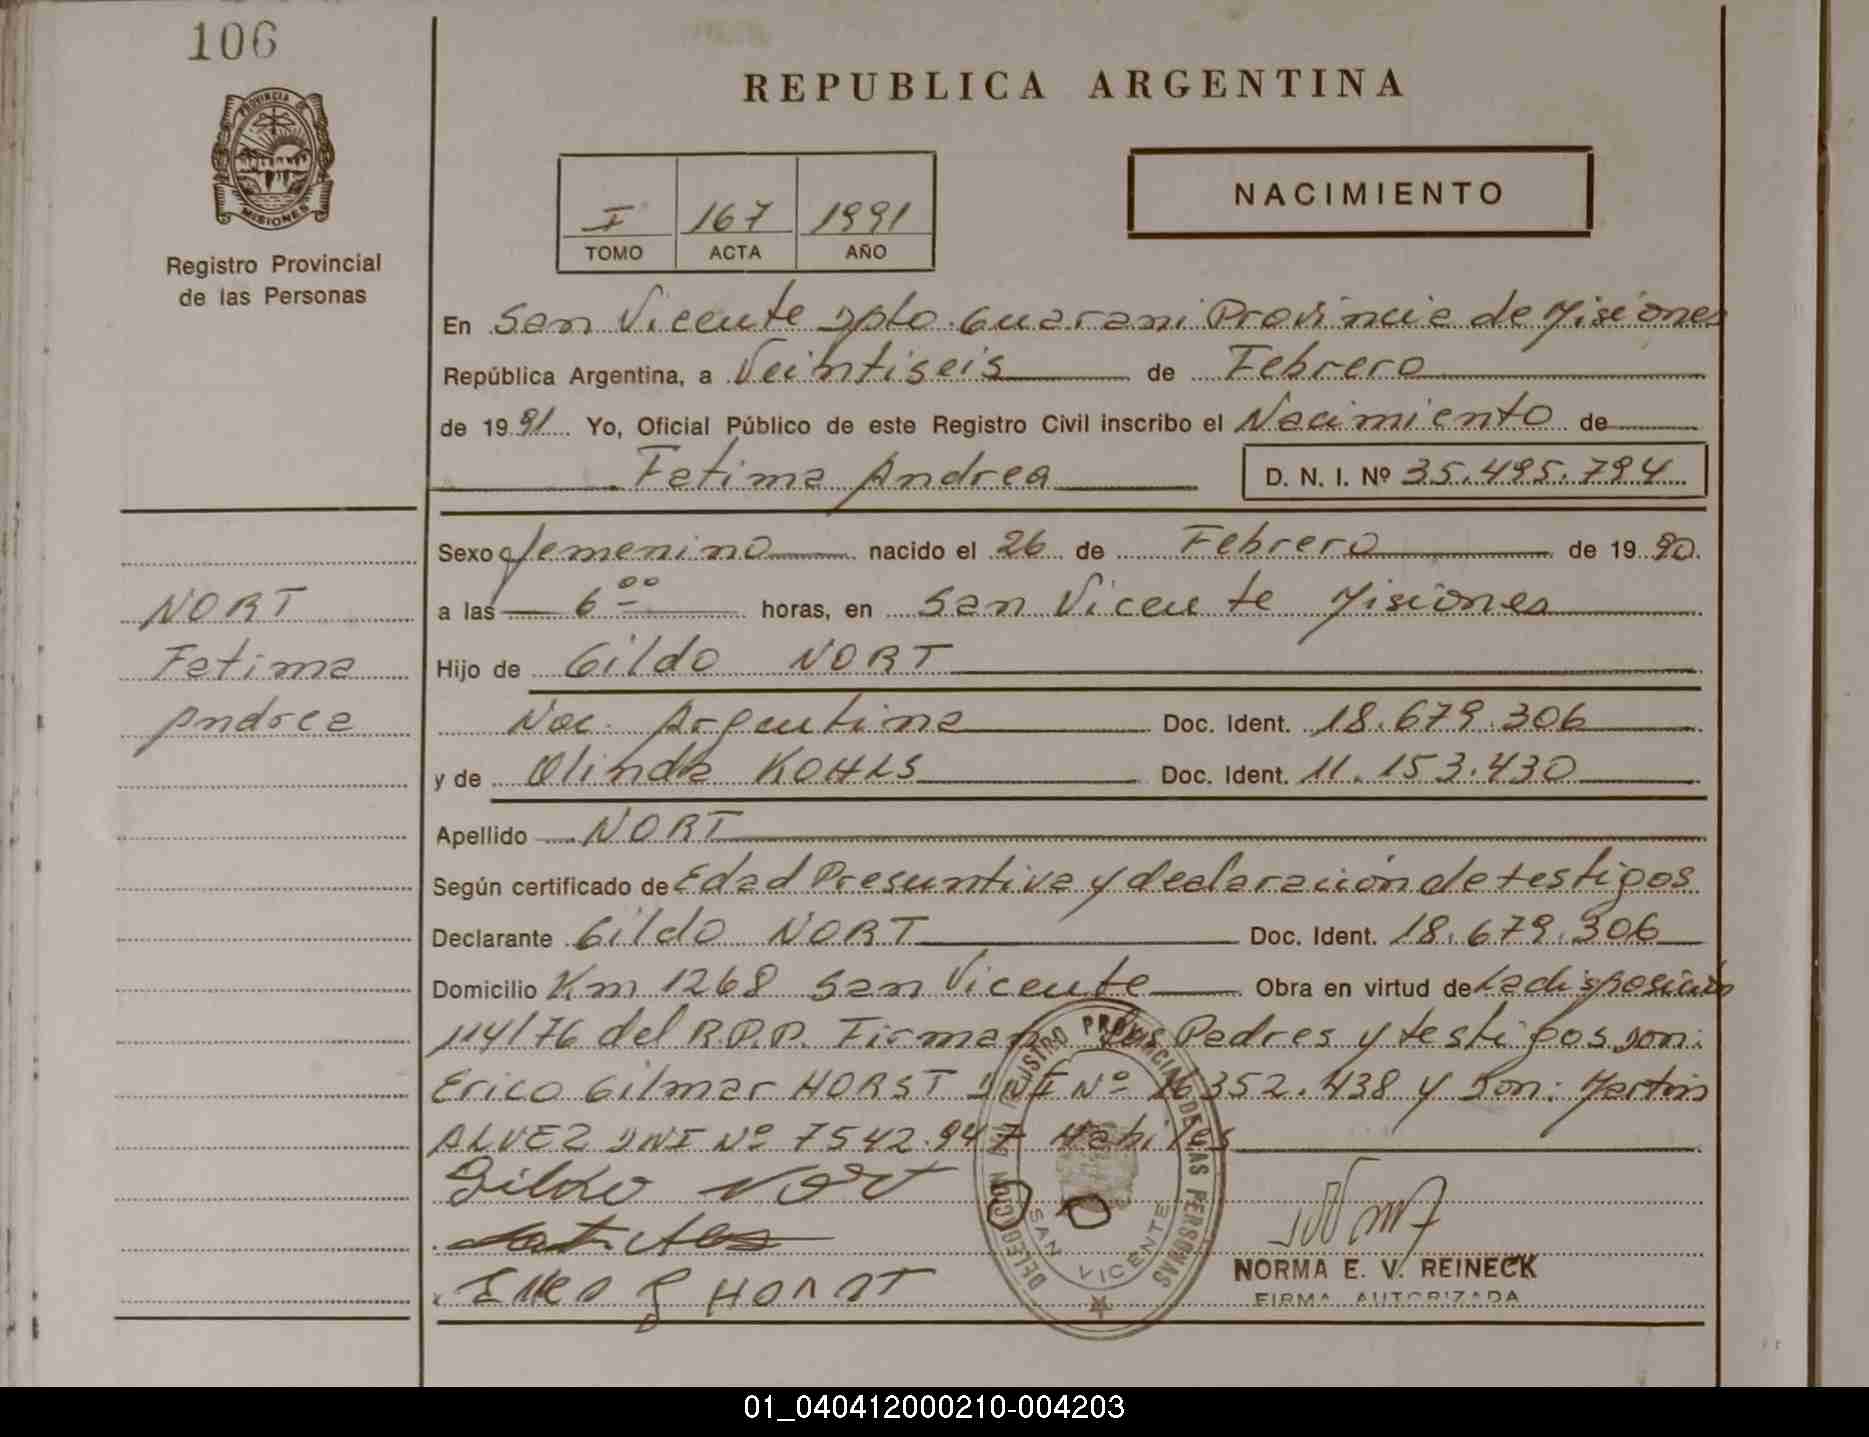 106
REPUBLICA ARGENTINA
PROVINCIA DE
MISIONES
Registro Provincial
de las Personas
I 167 1991
TOMO ACTA AÑO
NACIMIENTO
En San Vicente Dpto. Guarani Provincia de Misiones
República Argentina, a Veintiseis de Febrero
de 1991 Yo, Oficial Público de este Registro Civil inscribo el Nacimiento de
Fatima Andrea D. N. I. Nº 35.495.794
Sexo femenino nacido el 26 de Febrero de 1990.
a las 6 00 horas, en San Vicente Misiones
NORT
Fatima
Andrea
Hijo de Gildo NORT
Nac. Argentina Doc. Ident. 18.679.306
y de Olinda KOHLS Doc. Ident. 11.153.430
Apellido NORT
Según certificado de Edad Presuntiva y declaración de testigos
Declarante Gildo NORT Doc. Ident. 18.679.306
Domicilio Km 1268 San Vicente Obra en virtud de La disposición
114/76 del R.P.P. Firman los Padres y testigos Don:
Erico Gilmar HORST DNI Nº 16.352.438 y Don: Martin
ALVEZ DNI Nº 7542.947 Habiles
Gildo Nort
HORST
DELEGACION REGISTRO PROVINCIAL DE LAS PERSONAS
SAN VICENTE
NORMA E. V. REINECK
FIRMA AUTORIZADA
01_040412000210-004203